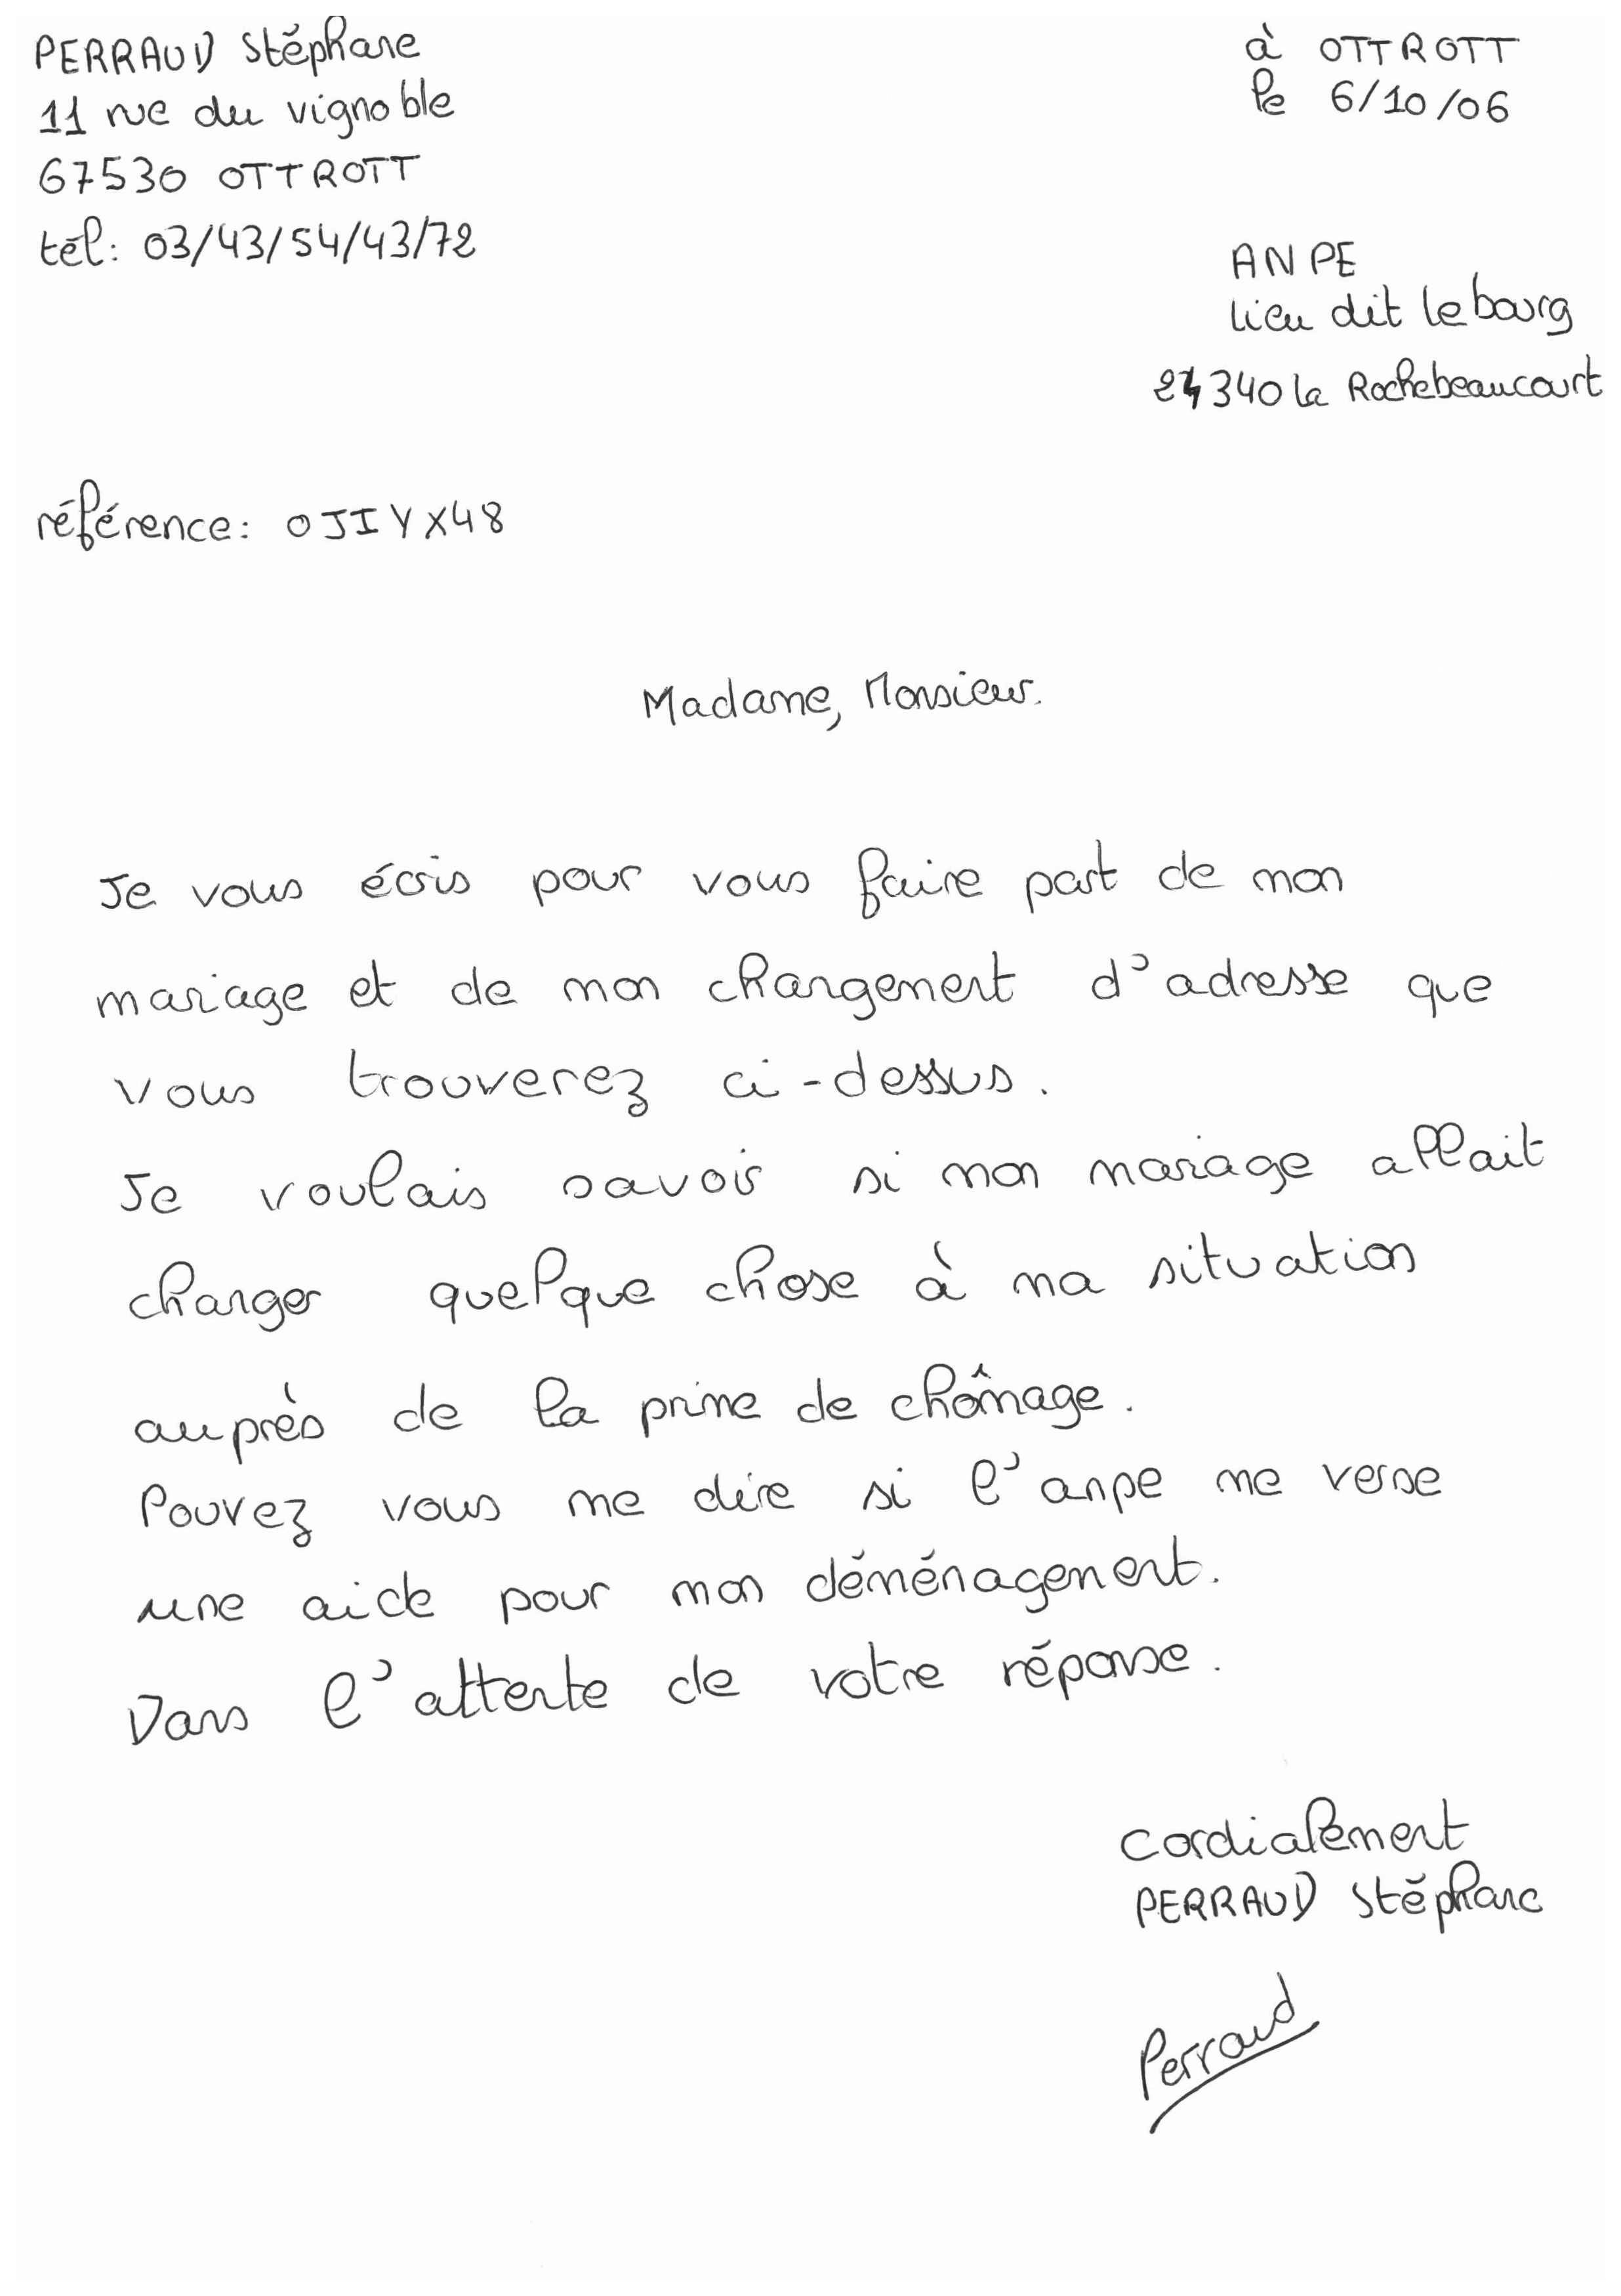 PERRAUD Stéphane
11 rue du vignoble
67530 OTTROTT
tél: 03/43/54/43/72
à OTTROTT
le 6/10/06
ANPE
lieu dit le bourg
24340 la Rochebeaucourt
référence: OJIYX48
Madame, Monsieur.
Je vous écris pour vous faire part de mon
mariage et de mon changement d'adresse que
vous trouverez ci-dessus.
Je voulais savoir si mon mariage allait
changer quelque chose à ma situation
auprès de la prime de chômage.
Pouvez vous me dire si l'anpe me verse
une aide pour mon déménagement.
Dans l'attente de votre réponse.
Cordialement
PERRAUD Stéphane
Perraud